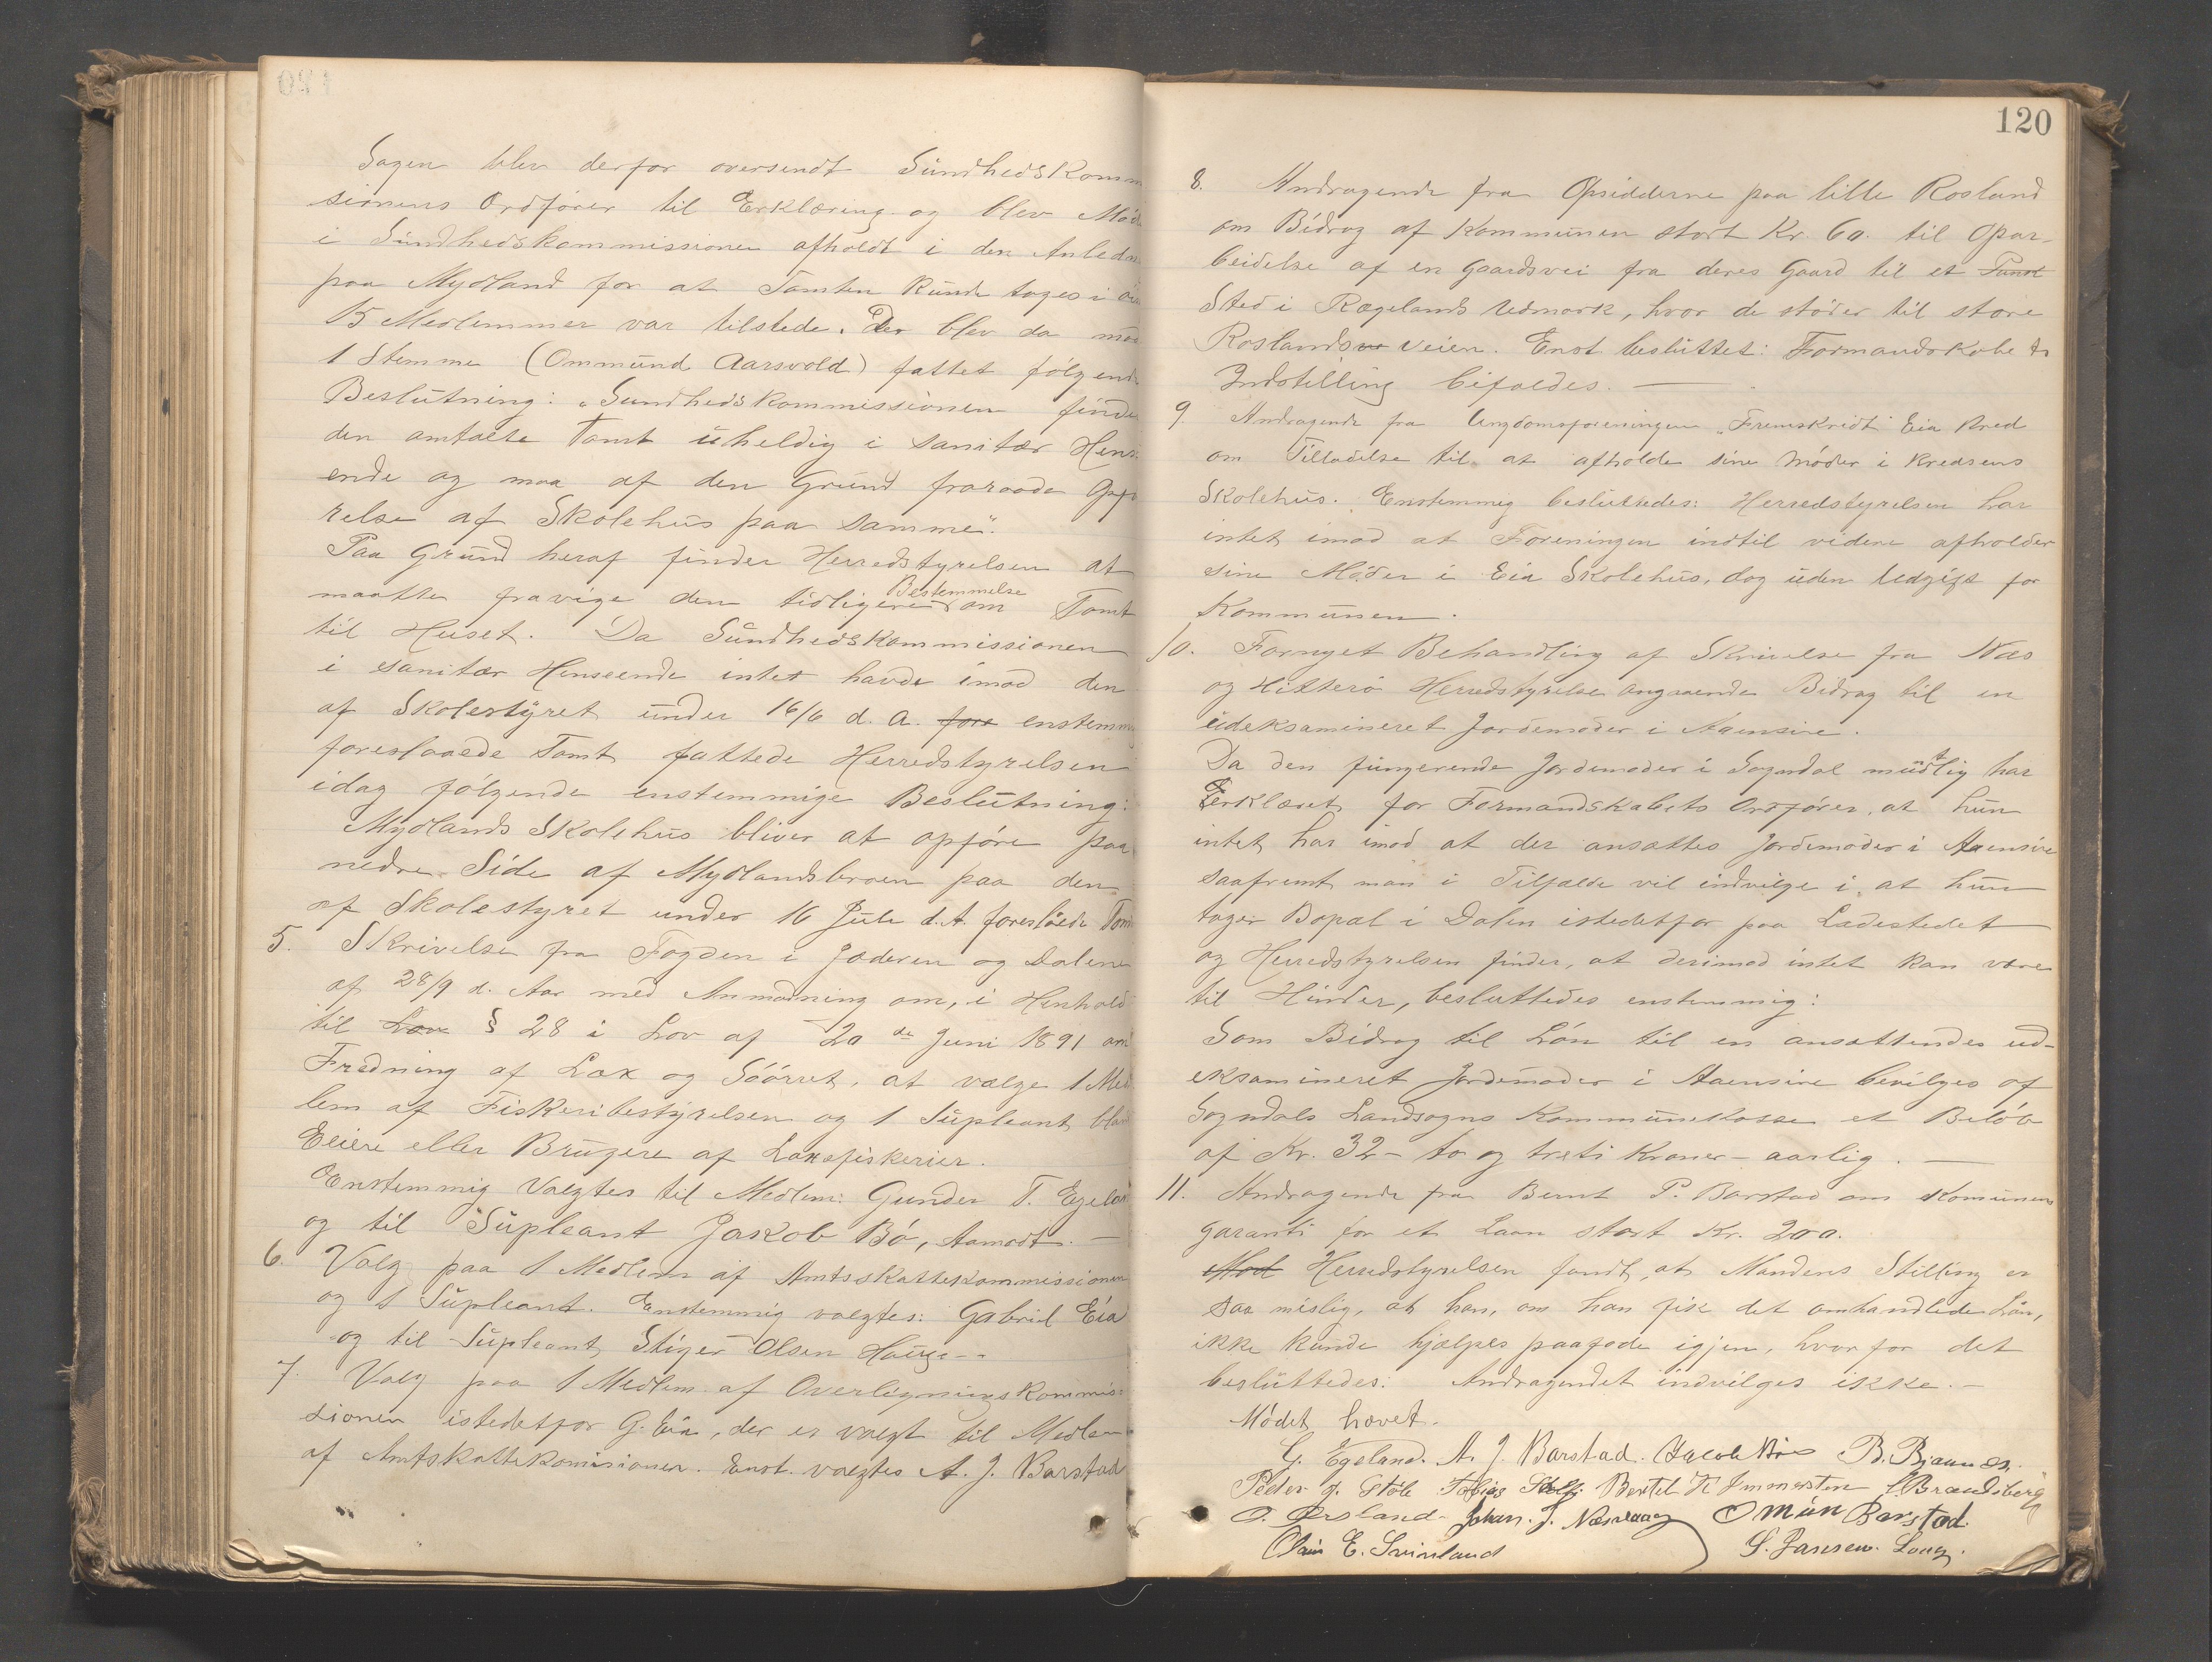 Sagen blev derfor oversendt Sundhedskomm
sionens Ordfører til Erklæring og blev Møde
i Sundhedskommissionen afholdt i den Anledn
paa Mydland for at Tomten kunde tages i
15 Medlemmer var tilstede. Der blev da mod
1 Stemme (Ommund Aarsvold) fattet følgende
Beslutning: "Sundhedskommissionen finder
den omtalte Tomt uheldig i sanitær Hens
ende og maa af den Grund fraraade Opfø
relse af Skolehus paa samme".
Paa Grund heraf finder Herredstyrelsen at
maatte fravige den tidligere Bestemmelse om Tomt
til Huset. Da Sundhedskommissionen
i sanitær Henseende intet havde imod den
af Skolestyret under 16/6 d. A. fore enstemmig
foreslaaede Tomt fattede Herredstyrelsen
idag følgende enstemmige Beslutning:
Mydlands Skolehus bliver at opføre paa
nedre Side af Mydlandsbroen paa den
af Skolestyret under 16 Juli d.A. foreslåede Tomt
5. Skrivelse fra Fogden i Jæderen og Dalene
af 28/9 d. Aar med Anmodning om, i Henhold
til Lov § 28 i Lov af 20de Juni 1891 om
Fredning af Lax og Søørret, at vælge 1 Med
lem af Fiskeribestyrelsen og 1 Supleant bland
Eiere eller Brugere af Laxefiskerier.
Enstemmig valgtes til Medlem: Gunder T. Egeland
og til Supleant Jakob Bø, Aamodt. —
6. Valg paa 1 Medlem af Amtsskattekommissionen
og 1 Supleant. Enstemmig valgtes: Gabriel Eia
og til Supleant Stiger Olsen Hauge -
7. Valg paa 1 Medlem af Overligningskommis
sionen istedetfor G. Eia, der er valgt til Medlem
af Amtskattekomisionen. Enst. valgtes A. J. Barstad
120
8. Andragende fra Opsidderne paa lille Rosland
om Bidrag af Kommunen stort Kr. 60. til Opar-
beidelse af en Gaardsvei fra deres Gaard til et Punkt
Sted i Rægelands Udmark, hvor de støder til store
Roslandsve veien. Enst besluttet: Formandskabets
Indstilling bifaldes. —
9. Andragende fra Ungdomsforeningen "Fremskridt" Eia Kred
om Tilladelse til at afholde sine Møder i Kredsens
Skolehus. Enstemmig besluttedes: Herredstyrelsen har
intet imod at Foreningen indtil videre afholder
sine Møder i Eia Skolehus, dog uden Udgift for
Kommunen.
10. Fornyet Behandling af Skrivelse fra Næs
og Hitterø Herredstyrelse angaaende Bidrag til en
udeksamineret Jordemoder i Aaensire.
Da den fungerende Jordemoder i Sogndal mundtlig har
Erklæret for Formandskabets Ordfører, at hun
intet har imod at der ansættes Jordemoder i Aaensire
saafremt man i Tilfælde vil indvilge i, at hun
tager Bopæl i Dalen istedetfor paa Ladestedet
og Herredstyrelsen finder, at derimod intet kan være
til Hinder, besluttedes enstemmig:
Som Bidrag til Løn til en ansættendes ud-
eksamineret Jordemoder i Aaensire bevilges af
Sogndals Landsogns Kommunekasse et Beløb
af Kr. 32 - to og treti Kroner - aarlig. —
11. Andragende fra Bernt P. Barstad om Komunens
garanti for et Laan stort Kr. 200.
Mod Herredstyrelsen fandt, at Mandens Stilling er
saa mislig, at han, om han fik det omhandlede Lån,
ikke kunde hjælpes paafode igjen, hvorfor det
besluttedes: Andragendet indvilges ikke. -
Mødet hævet.
G. Egeland. A. J. Barstad. Jacob Bø B.
Peder J. Støle Tobias Bertil Immerstein Brandsberg
O. Ørsland Johan. J. Omun Barstad.
E. Svinland S. Jansen.